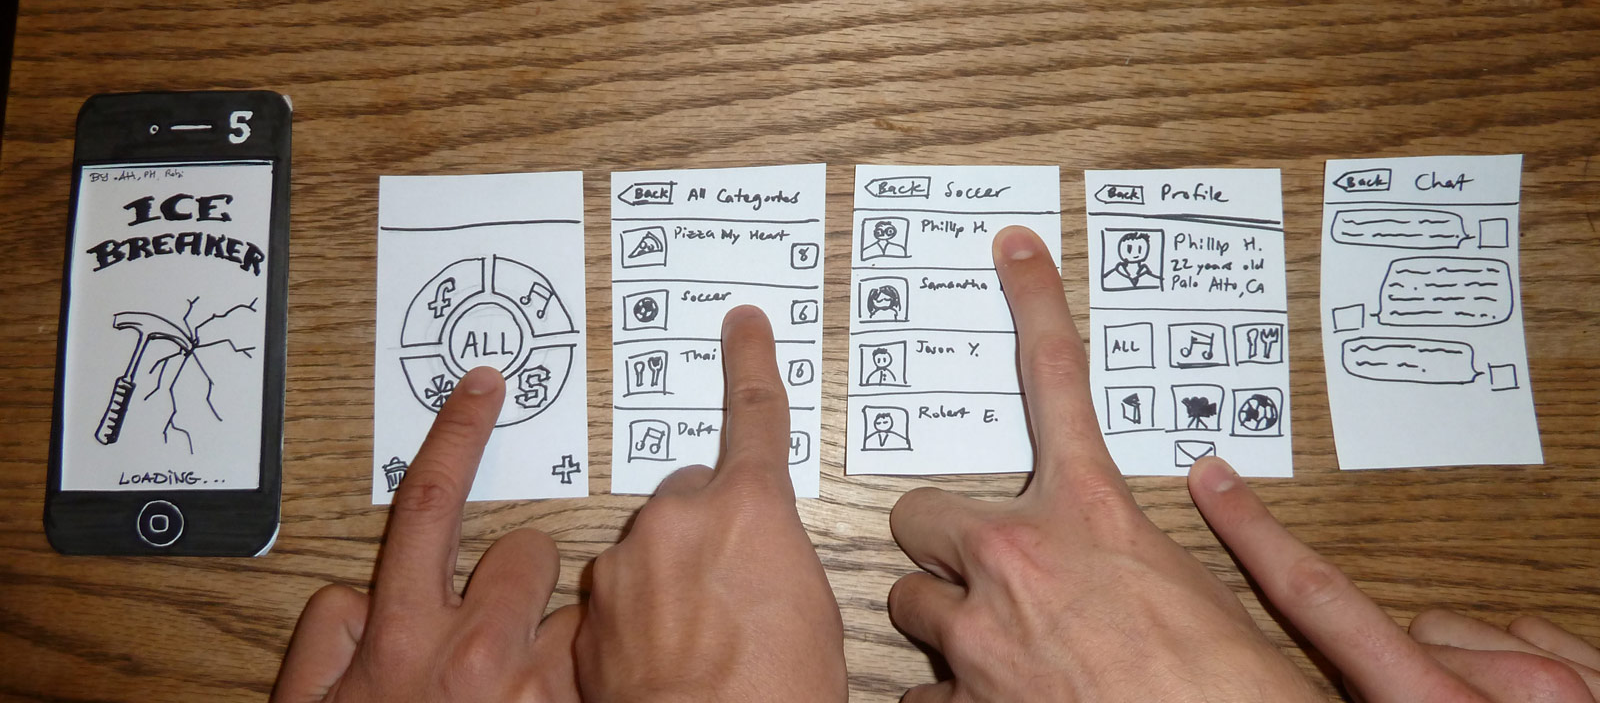 5
BY: Ali, PH, Robi
ICE
BREAKER
LOADING...
f
ALL
S
Back All Categories
Pizza My Heart
8
Soccer
6
Thai
6
Daft
4
Back Soccer
Phillip H.
Samantha
Jason Y.
Robert E.
Back Profile
Phillip H.
22 years old
Palo Alto, CA
ALL
Back Chat